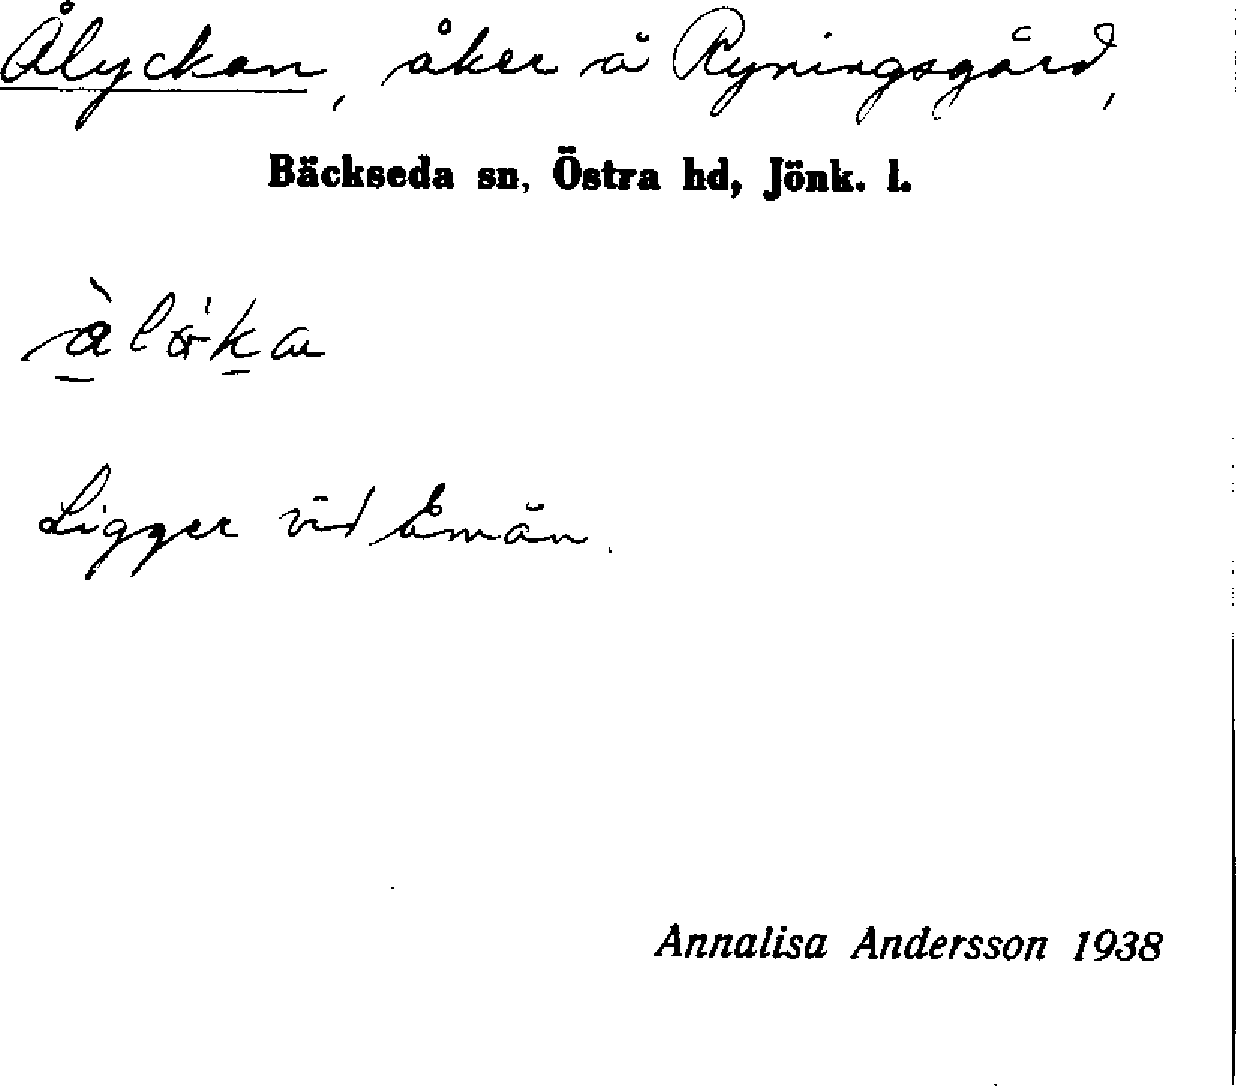 Ålyckan, åker å Ryningsgård,
Bäckseda sn, Östra hd, Jönk. l.
Ligger vid Emån.
Annalisa Andersson 1938